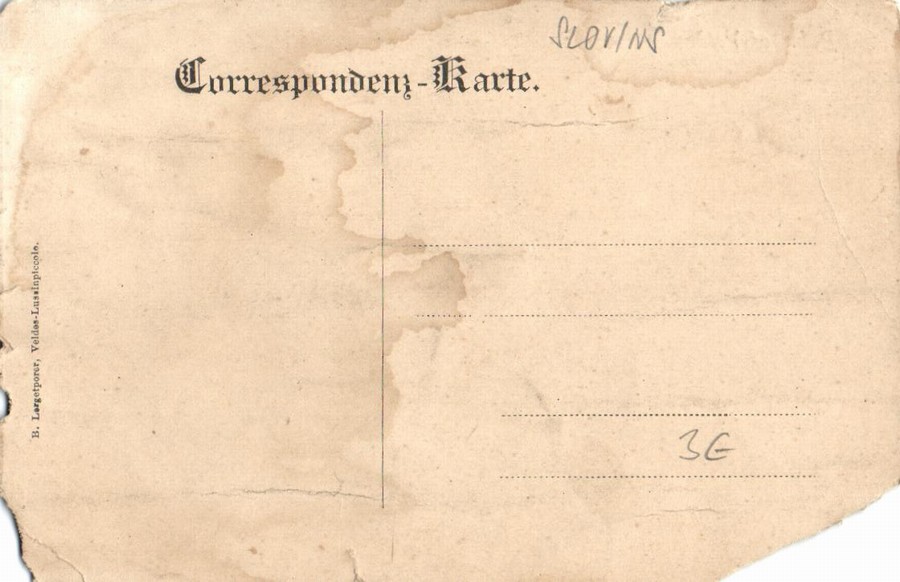 SLOVINS
Correspondenz-Karte.
B. Lergetporer, Veldes-Lussinpiccolo.
3E